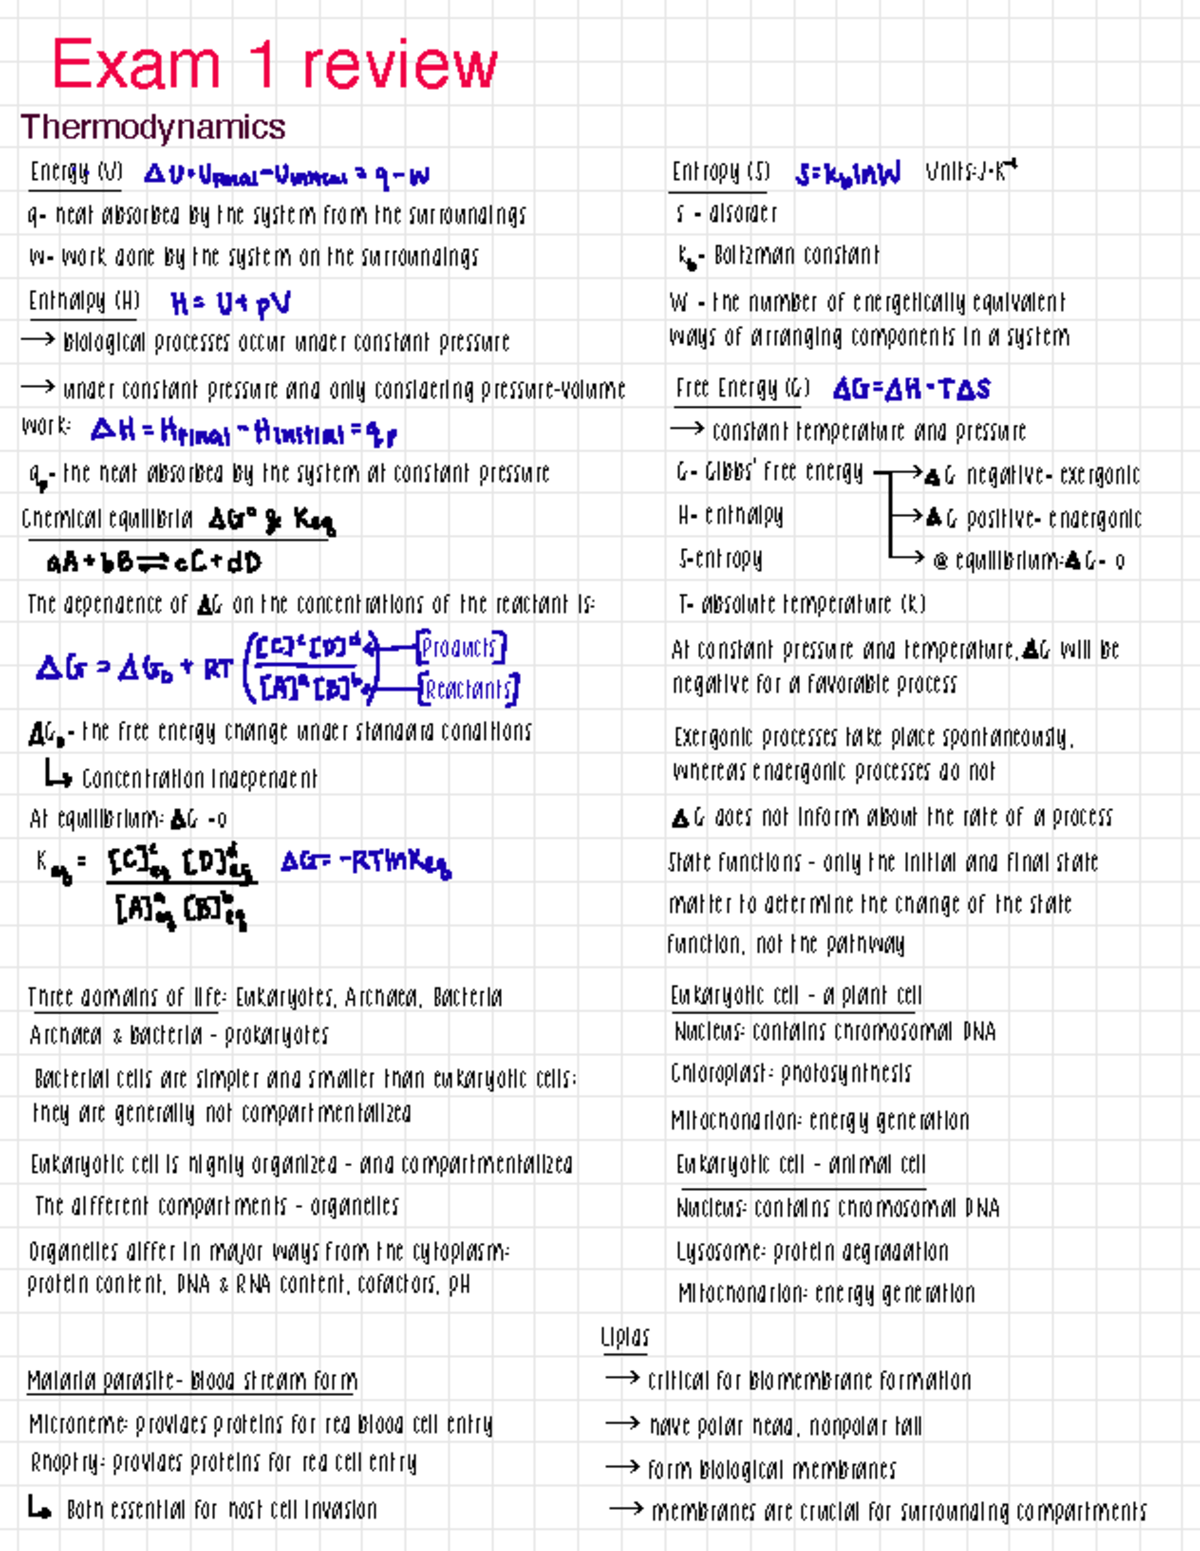 Exam 1 review
Thermodynamics
Energy (U) ΔU = Ufinal - Uinitial = q - W
q- heat absorbed by the system from the surroundings
w- work done by the system on the surroundings
Enthalpy (H) H = U + pV
→ biological processes occur under constant pressure
→ under constant pressure and only considering pressure-volume
work: ΔH = Hfinal - Hinitial = qp
qp- the heat absorbed by the system at constant pressure
Chemical equilibria ΔG° & Keq
aA + bB ⇌ cC + dD
The dependence of ΔG on the concentrations of the reactant is:
ΔG = ΔG₀ + RT ([C]ᶜ [D]ᵈ / [A]ᵃ [B]ᵇ)
[Products]
[Reactants]
ΔG₀- the free energy change under standard conditions
↳ Concentration independent
At equilibrium: ΔG -0
Keq = [C]ᶜeq [D]ᵈeq / [A]ᵃeq [B]ᵇeq ΔG = -RTlnKeq
Entropy (S) S = kb lnW Units: J·K⁻¹
s - disorder
Kb- Boltzman constant
W - the number of energetically equivalent
ways of arranging components in a system
Free Energy (G) ΔG = ΔH - TΔS
→ constant temperature and pressure
G- Gibbs' free energy → ΔG negative- exergonic
H- enthalpy → ΔG positive- endergonic
S-entropy → @ equilibrium: ΔG- 0
T- absolute temperature (K)
At constant pressure and temperature, ΔG will be
negative for a favorable process
Exergonic processes take place spontaneously,
whereas endergonic processes do not
ΔG does not inform about the rate of a process
State functions - only the initial and final state
matter to determine the change of the state
function, not the pathway
Three domains of life: Eukaryotes, Archaea, Bacteria
Archaea & bacteria - prokaryotes
Bacterial cells are simpler and smaller than eukaryotic cells:
they are generally not compartmentalized
Eukaryotic cell is highly organized - and compartmentalized
The different compartments - organelles
Organelles differ in major ways from the cytoplasm:
protein content, DNA & RNA content, cofactors, pH
Eukaryotic cell - a plant cell
Nucleus: contains chromosomal DNA
Chloroplast: photosynthesis
Mitochondrion: energy generation
Eukaryotic cell - animal cell
Nucleus: contains chromosomal DNA
Lysosome: protein degradation
Mitochondrion: energy generation
Malaria parasite- blood stream form
Microneme: provides proteins for red blood cell entry
Rhoptry: provides proteins for red cell entry
↳ Both essential for host cell invasion
Lipids
→ critical for biomembrane formation
→ have polar head, nonpolar tail
→ form biological membranes
→ membranes are crucial for surrounding compartments